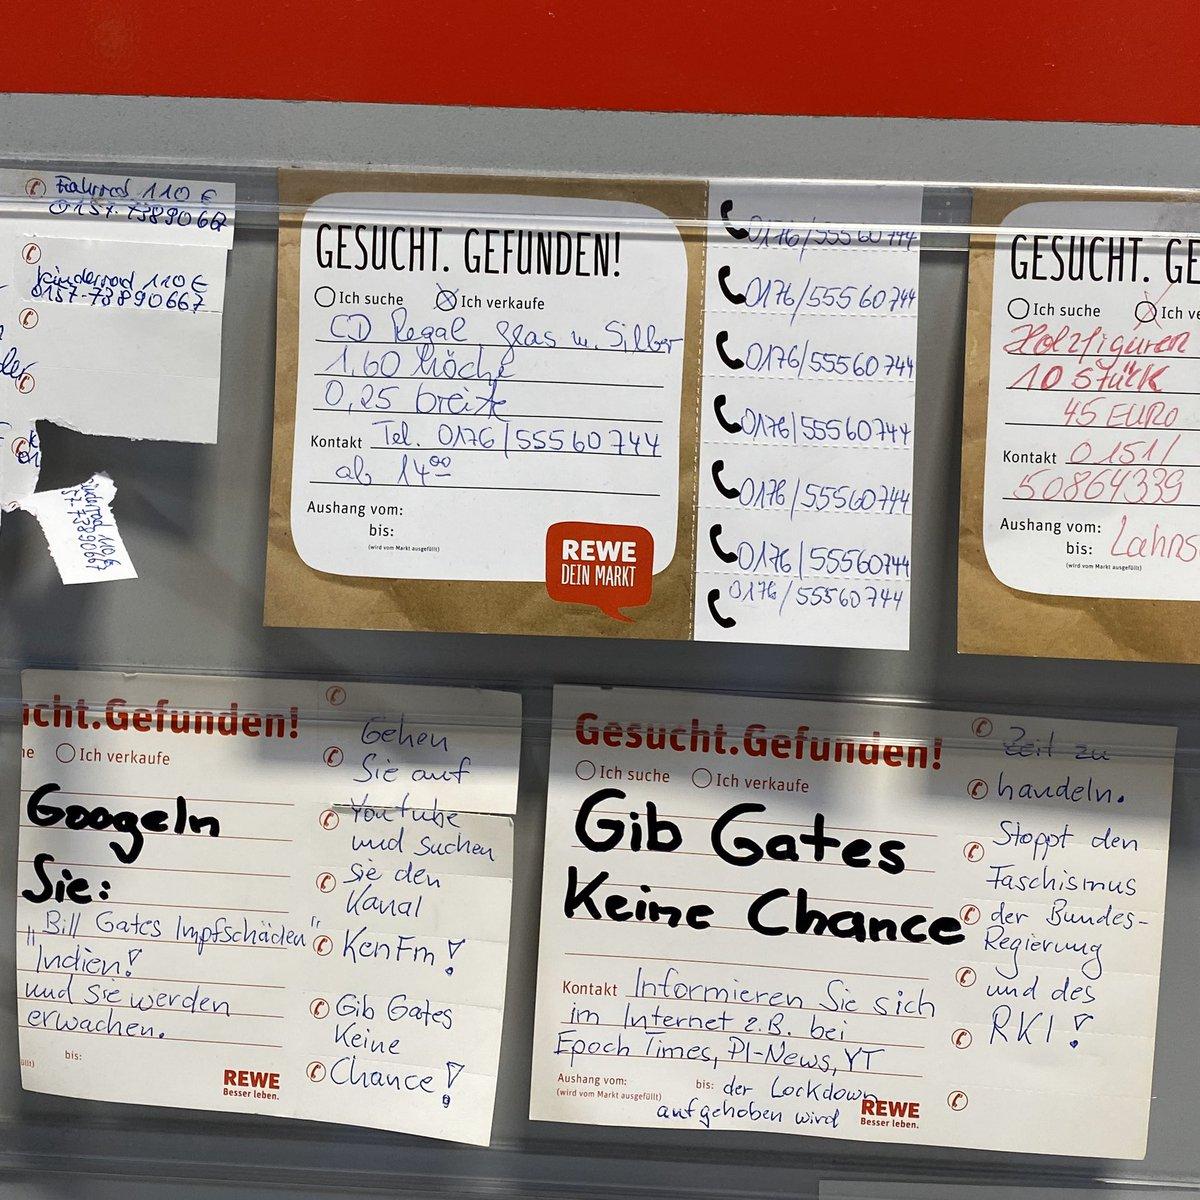 Fahrrad 110 €
0157-73890667
Kinderrad 110 €
0157-73890667
GESUCHT. GEFUNDEN!
Ich suche Ich verkaufe
CD Regal glas u. Silber
1,60 Höche
0,25 breite
Kontakt Tel. 0176/55560744
ab 14 00
Aushang vom:
bis:
(wird vom Markt ausgefüllt)
REWE
DEIN MARKT
0176/55560744
0176/55560744
0176/55560744
0176/55560744
0176/55560744
0176/55560744
0176/55560744
GESUCHT. GE
Ich suche Ich ve
Holzfiguren
10 Stück
45 EURO
Kontakt 0151/
50864339
Aushang vom:
bis: Lahns
(wird vom Markt ausgefüllt)
icht.Gefunden!
he Ich verkaufe
Googeln
Sie:
"Bill Gates Impfschäden"
"Indien!
und sie werden
erwachen.
bis:
REWE
Besser leben.
Gehen
Sie auf
Youtube
und suchen
sie den
Kanal
KenFm!
Gib Gates
Keine
Chance!
Gesucht.Gefunden!
Ich suche Ich verkaufe
Gib Gates
Keine Chance
Kontakt Informieren Sie sich
im Internet z.B. bei
Epoch Times, PI-News, YT
Aushang vom: bis: der Lockdown
(wird vom Markt ausgefüllt)
aufgehoben wird
REWE
Besser leben.
Zeit zu
handeln.
Stoppt den
Faschismus
der Bundes-
Regierung
und des
RKI!